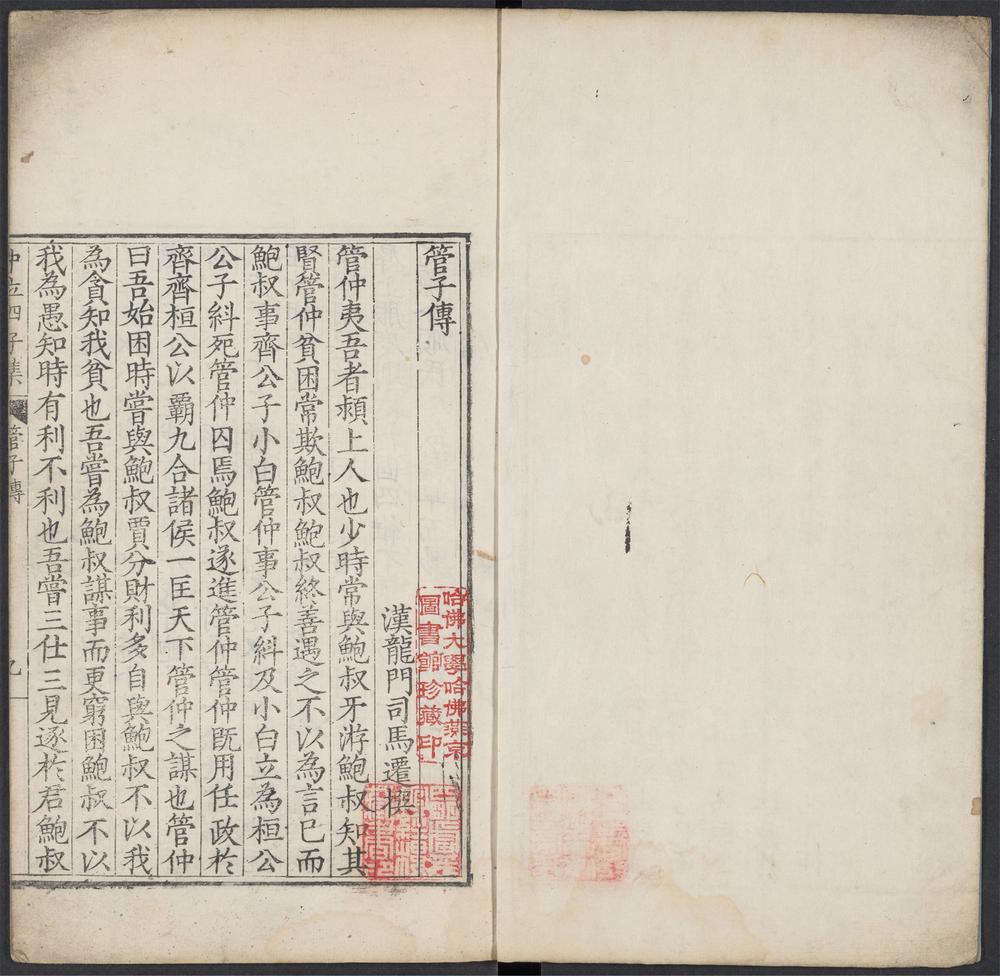 管子傳
漢龍門司馬遷撰
管仲夷吾者潁上人也少時常與鮑叔牙游鮑叔知其
賢管仲貧困常欺鮑叔鮑叔終善遇之不以為言已而
鮑叔事齊公子小白管仲事公子糾及小白立為桓公
公子糾死管仲囚焉鮑叔遂進管仲管仲既用任政於
齊齊桓公以霸九合諸侯一匡天下管仲之謀也管仲
曰吾始困時嘗與鮑叔賈分財利多自與鮑叔不以我
為貪知我貧也吾嘗為鮑叔謀事而更窮困鮑叔不以
我為愚知時有利不利也吾嘗三仕三見逐於君鮑叔
中立四子集 管子傳
哈佛大學哈佛燕京
圖書館珍藏印